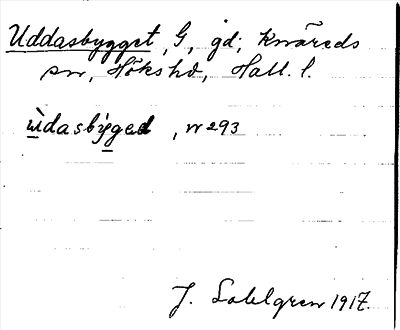 Uddasbygget, G, gd; Knäreds
sn, Höks hd, Hall. l.
ùdasby̆ged, nr 293
J. Sahlgren 1917.